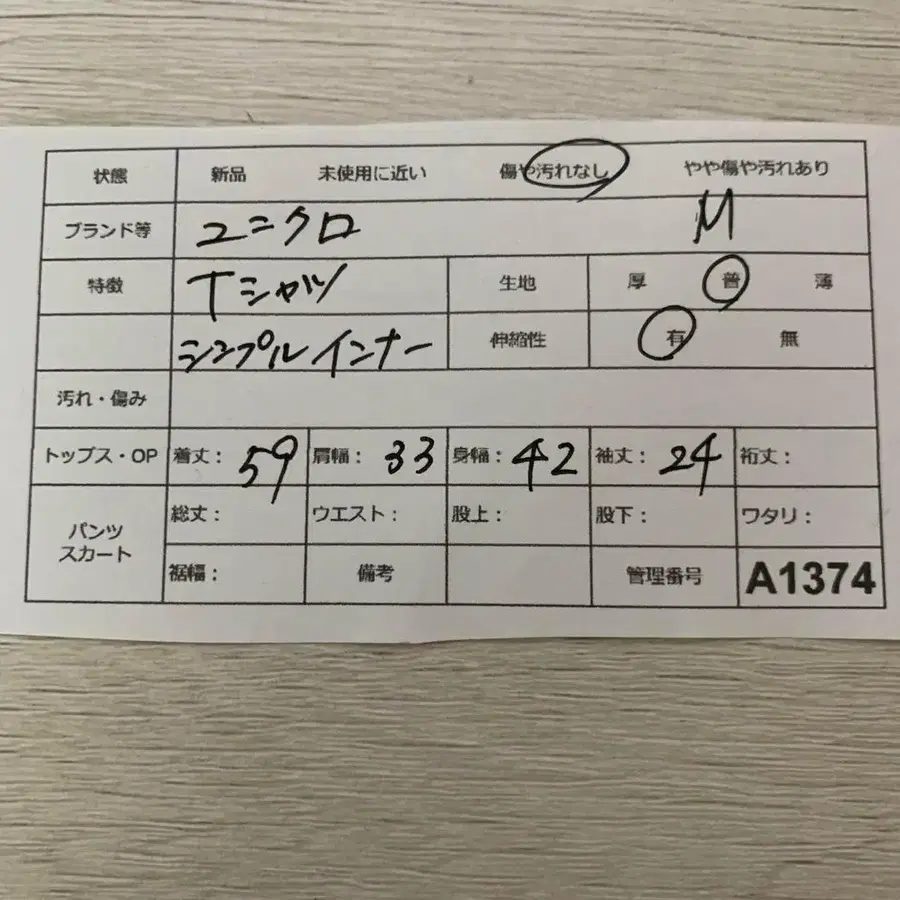 状態 新品 未使用に近い 傷や汚れなし やや傷や汚れあり
ブランド等 ユニクロ M
特徴 Tシャツ 生地 厚 普 薄
シンプルインナー 伸縮性 有 無
汚れ・傷み
トップス・OP 着丈: 59 肩幅: 33 身幅: 42 袖丈: 24 裄丈:
パンツ スカート 総丈: ウエスト: 股上: 股下: ワタリ:
裾幅: 備考 管理番号 A1374